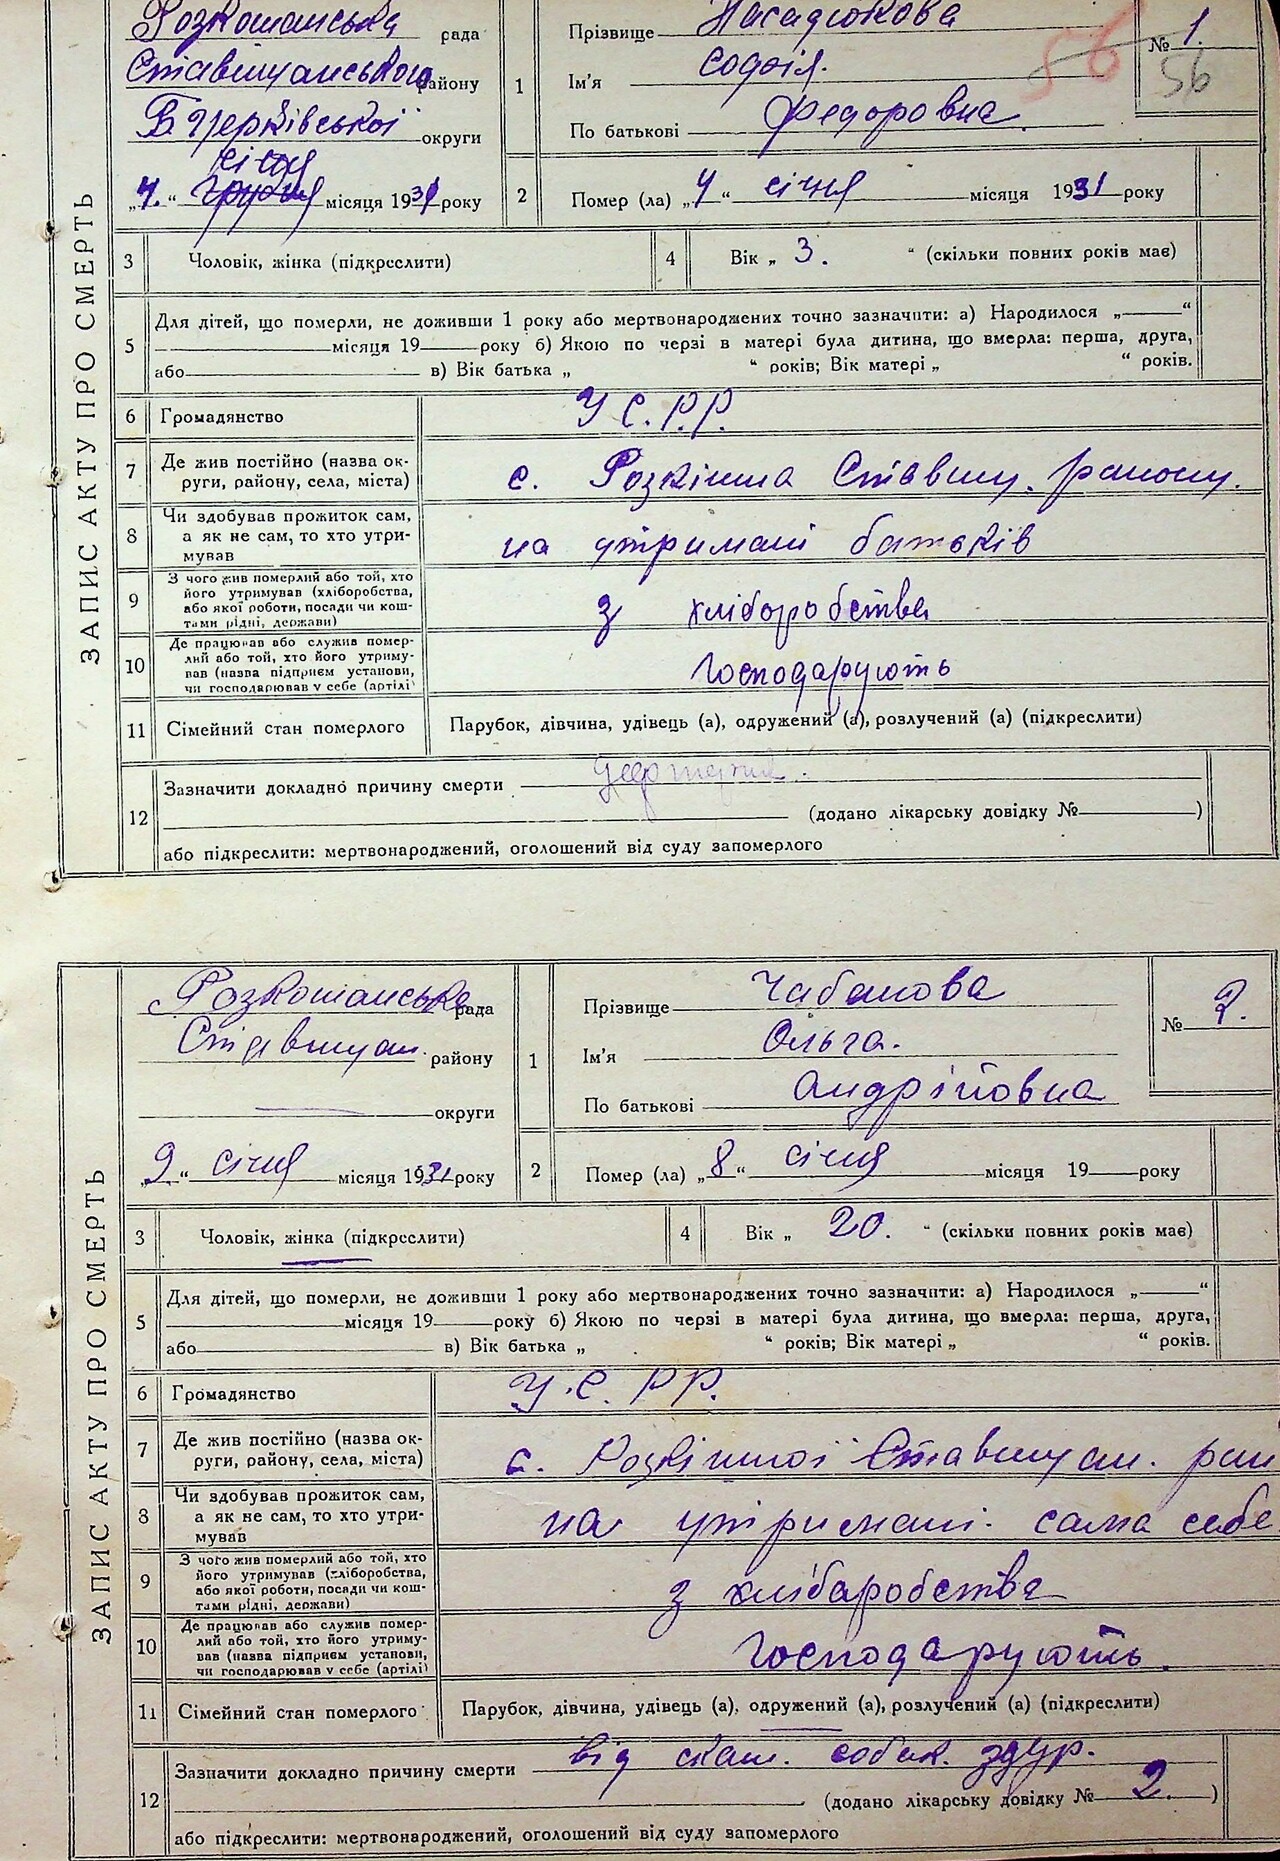 ЗАПИС АКТУ ПРО СМЕРТЬ
Розкошанська рада
Ставищанського району
Б Церківської округи
січня
„4.“ грудня місяця 1931 року
1 Прізвище
Ім'я Софія.
По батькові Федоровна.
№ 1.
56
56
2 Помер (ла) „4“ січня місяця 1931 року
3 Чоловік, жінка (підкреслити)
4 Вік „ 3. “ (скільки повних років має)
5 Для дітей, що померли, не доживши 1 року або мертвонароджених точно зазначити: а) Народилося „ “
місяця 19 року б) Якою по черзі в матері була дитина, що вмерла: перша, друга,
або в) Вік батька „ “ років; Вік матері „ “ років.
6 Громадянство У С.Р.Р.
7 Де жив постійно (назва ок-
руги, району, села, міста) с. Розкішна Ставищ. району.
8 Чи здобував прожиток сам,
а як не сам, то хто утри-
мував на утримані батьків
9 З чого жив померлий або той, хто
його утримував (хліборобства,
або якої роботи, посади чи кош-
тами рідні, держави) з хліборобства
10 Де працював або служив помер-
лий або той, хто його утриму-
вав (назва підприєм установи,
чи господарював у себе (артілі) господарують
11 Сімейний стан померлого Парубок, дівчина, удівець (а), одружений (а), розлучений (а) (підкреслити)
12 Зазначити докладно причину смерти
(додано лікарську довідку № )
або підкреслити: мертвонароджений, оголошений від суду запомерлого
ЗАПИС АКТУ ПРО СМЕРТЬ
Розкошанська рада
Ставищан. району
округи
„9“ січня місяця 1931 року
1 Прізвище Чабанова
Ім'я Ольга.
По батькові Андрійовна
№ 2.
2 Помер (ла) „8“ січня місяця 19 року
3 Чоловік, жінка (підкреслити)
4 Вік „ 20. “ (скільки повних років має)
5 Для дітей, що померли, не доживши 1 року або мертвонароджених точно зазначити: а) Народилося „ “
місяця 19 року б) Якою по черзі в матері була дитина, що вмерла: перша, друга,
або в) Вік батька „ “ років; Вік матері „ “ років.
6 Громадянство У.С.РР.
7 Де жив постійно (назва ок-
руги, району, села, міста) с. Розкішної Ставищан. рай
8 Чи здобував прожиток сам,
а як не сам, то хто утри-
мував на утримані. сама себе
9 З чого жив померлий або той, хто
його утримував (хліборобства,
або якої роботи, посади чи кош-
тами рідні, держави) з хлібаробства
10 Де працював або служив помер-
лий або той, хто його утриму-
вав (назва підприєм установи,
чи господарював у себе (артілі) господарують.
11 Сімейний стан померлого Парубок, дівчина, удівець (а), одружений (а), розлучений (а) (підкреслити)
12 Зазначити докладно причину смерти від скаж. собак.
(додано лікарську довідку № 2. )
або підкреслити: мертвонароджений, оголошений від суду запомерлого